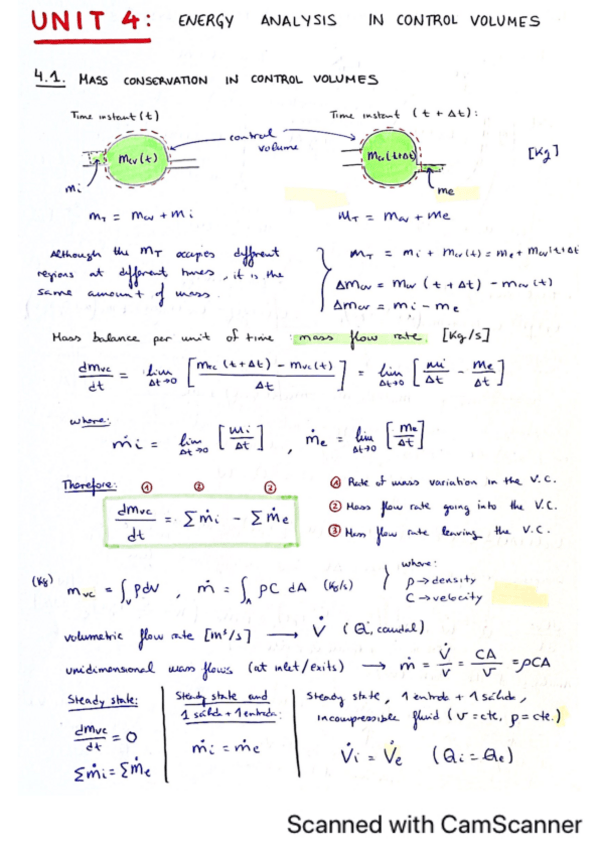 UNIT 4: ENERGY ANALYSIS IN CONTROL VOLUMES
4.1. MASS CONSERVATION IN CONTROL VOLUMES
Time instant (t)
Time instant (t + Δt):
control volume
mcv(t)
mcv(t+Δt)
[Kg]
mi
me
mT = mcv + mi
MT = mcv + me
Although the MT occupies different
regions at different times, it is the
same amount of mass.
mT = mi + mcv(t) = me + mcv(t+Δt
Δmcv = mcv (t + Δt) - mcv (t)
Δmcv = mi - me
Mass balance per unit of time : mass flow rate. [Kg/s]
dmvc/dt = lim Δt→0 [mvc (t+Δt) - mvc(t) / Δt] = lim Δt→0 [mi/Δt - me/Δt]
where:
ṁi = lim Δt→0 [mi/Δt] , ṁe = lim Δt→0 [me/Δt]
Therefore: ① ② ③
dmvc/dt = Σṁi - Σṁe
① Rate of mass variation in the V.C.
② Mass flow rate going into the V.C.
③ Mass flow rate leaving the V.C.
(Kg) mvc = ∫v ρdV , ṁ = ∫A ρC dA (Kg/s)
where:
ρ → density
C → velocity
volumetric flow rate [m³/s] → V̇ (Q, caudal)
unidimensional mass flows (at inlet/exits) → ṁ = V̇/v = CA/v = ρCA
Steady state:
dmvc/dt = 0
Σṁi = Σṁe
Steady state and
1 salida + 1 entrada:
ṁi = ṁe
Steady state, 1 entrada + 1 salida,
incompressible fluid (v = cte, ρ = cte.)
V̇i = V̇e (Qi = Qe)
Scanned with CamScanner